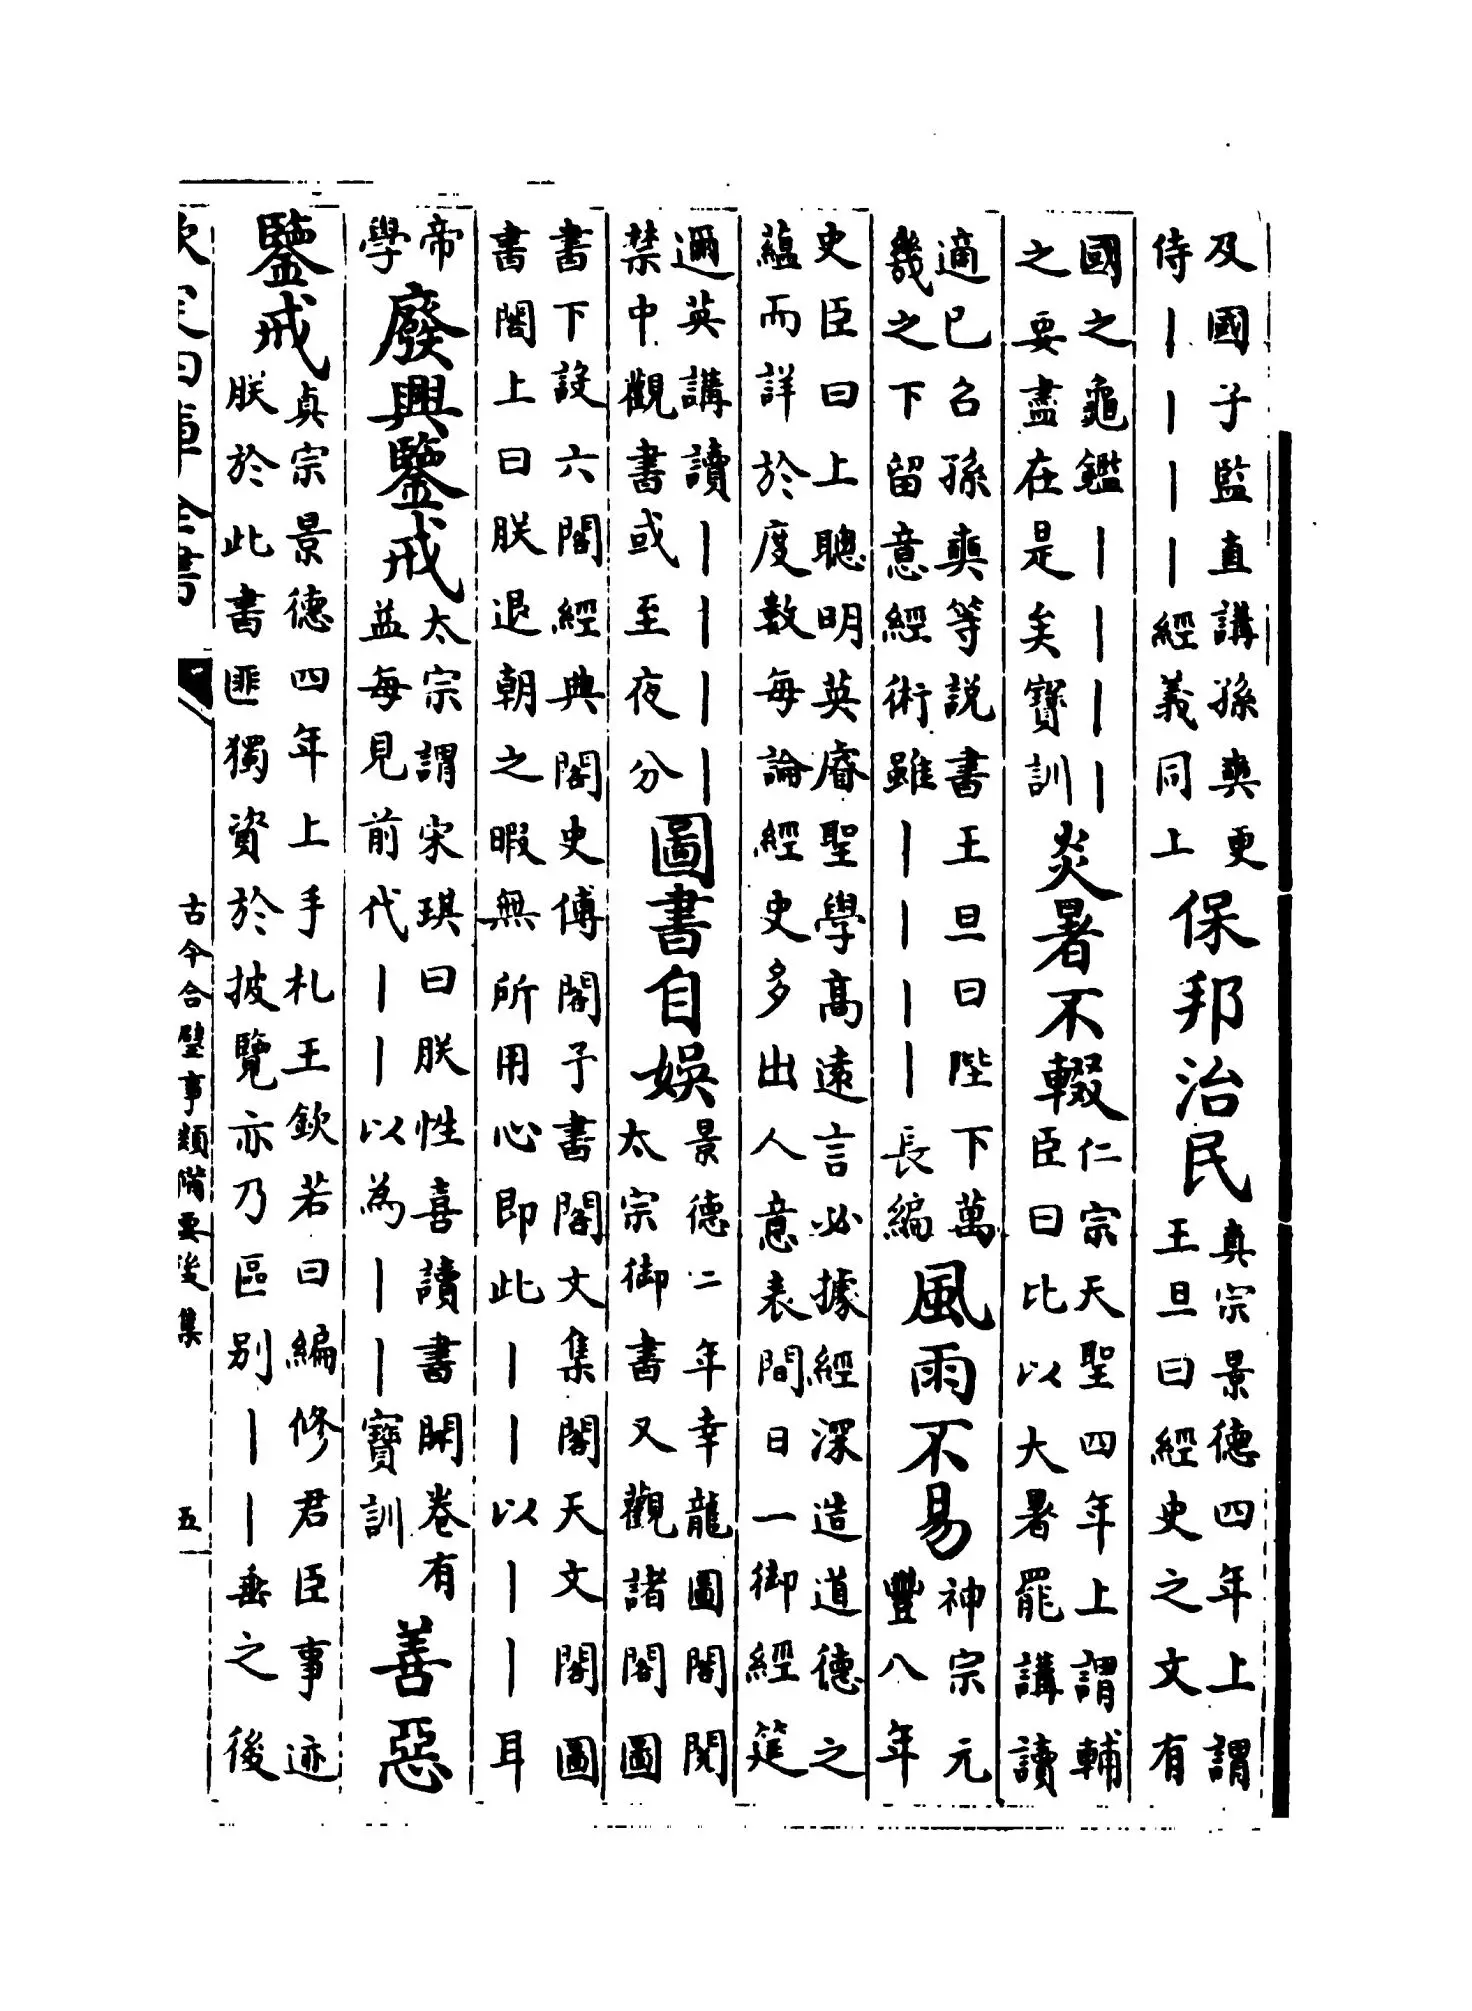 及國子監直講孫奭更
侍||||經義同上
保邦治民
真宗景德四年上謂
王旦曰經史之文有
國之龜鑑||||
之要盡在是矣寶訓
炎暑不輟
仁宗天聖四年上謂輔
臣曰比以大暑罷講讀
適已召孫奭等説書王旦曰陛下萬
幾之下留意經術雖||||長編
風雨不易
神宗元
豐八年
史臣曰上聰明英睿聖學高遠言必據經深造道德之
蘊而詳於度數每論經史多出人意表間日一御經筵
邇英講讀||||
禁中觀書或至夜分
圖書自娛
景德二年幸龍圖閣閱
太宗御書又觀諸閣圖
書下設六閣經典閣史傳閣子書閣文集閣天文閣圖
書閣上曰朕退朝之暇無所用心即此||以||耳
帝
學
廢興鑒戒
太宗謂宋琪曰朕性喜讀書開卷有
益每見前代||以為||寶訓
善惡
鑒戒
真宗景德四年上手札王欽若曰編修君臣事迹
朕於此書匪獨資於披覽亦乃區別||垂之後
欽定四庫全書
古今合璧事類備要後集
五